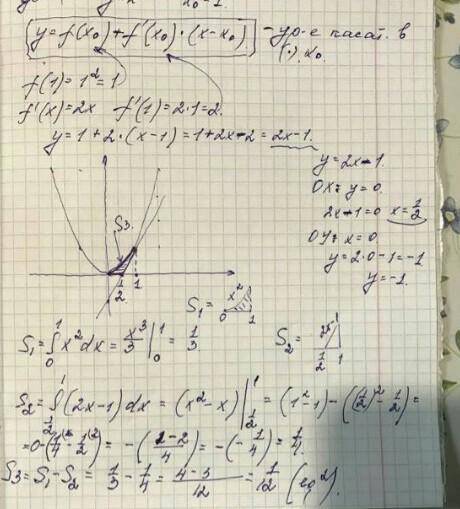 x₀=1.
y=f(x₀)+f'(x₀)·(x-x₀) - ур-е касат. в (·) x₀.
f(1)=1²=1
f'(x)=2x f'(1)=2·1=2.
y=1+2·(x-1)=1+2x-2=2x-1.
y=2x-1.
OX: y=0.
2x-1=0 x=1/2
OY: x=0
y=2·0-1=-1
y=-1.
S₃
1/2 1
S₁= x² 0 1
S₁=∫₀¹ x²dx= x³/3 |₀¹ = 1/3.
S₂= 2x-1 1/2 1
S₂=∫_{1/2}^1 (2x-1)dx=(x²-x)|_{1/2}^1=(1²-1)-((1/2)²-1/2)=
=0-(1/4-1/2)=-((1-2)/4)=-(-1/4)=1/4.
S₃=S₁-S₂=1/3-1/4=(4-3)/12=1/12 (ед²).